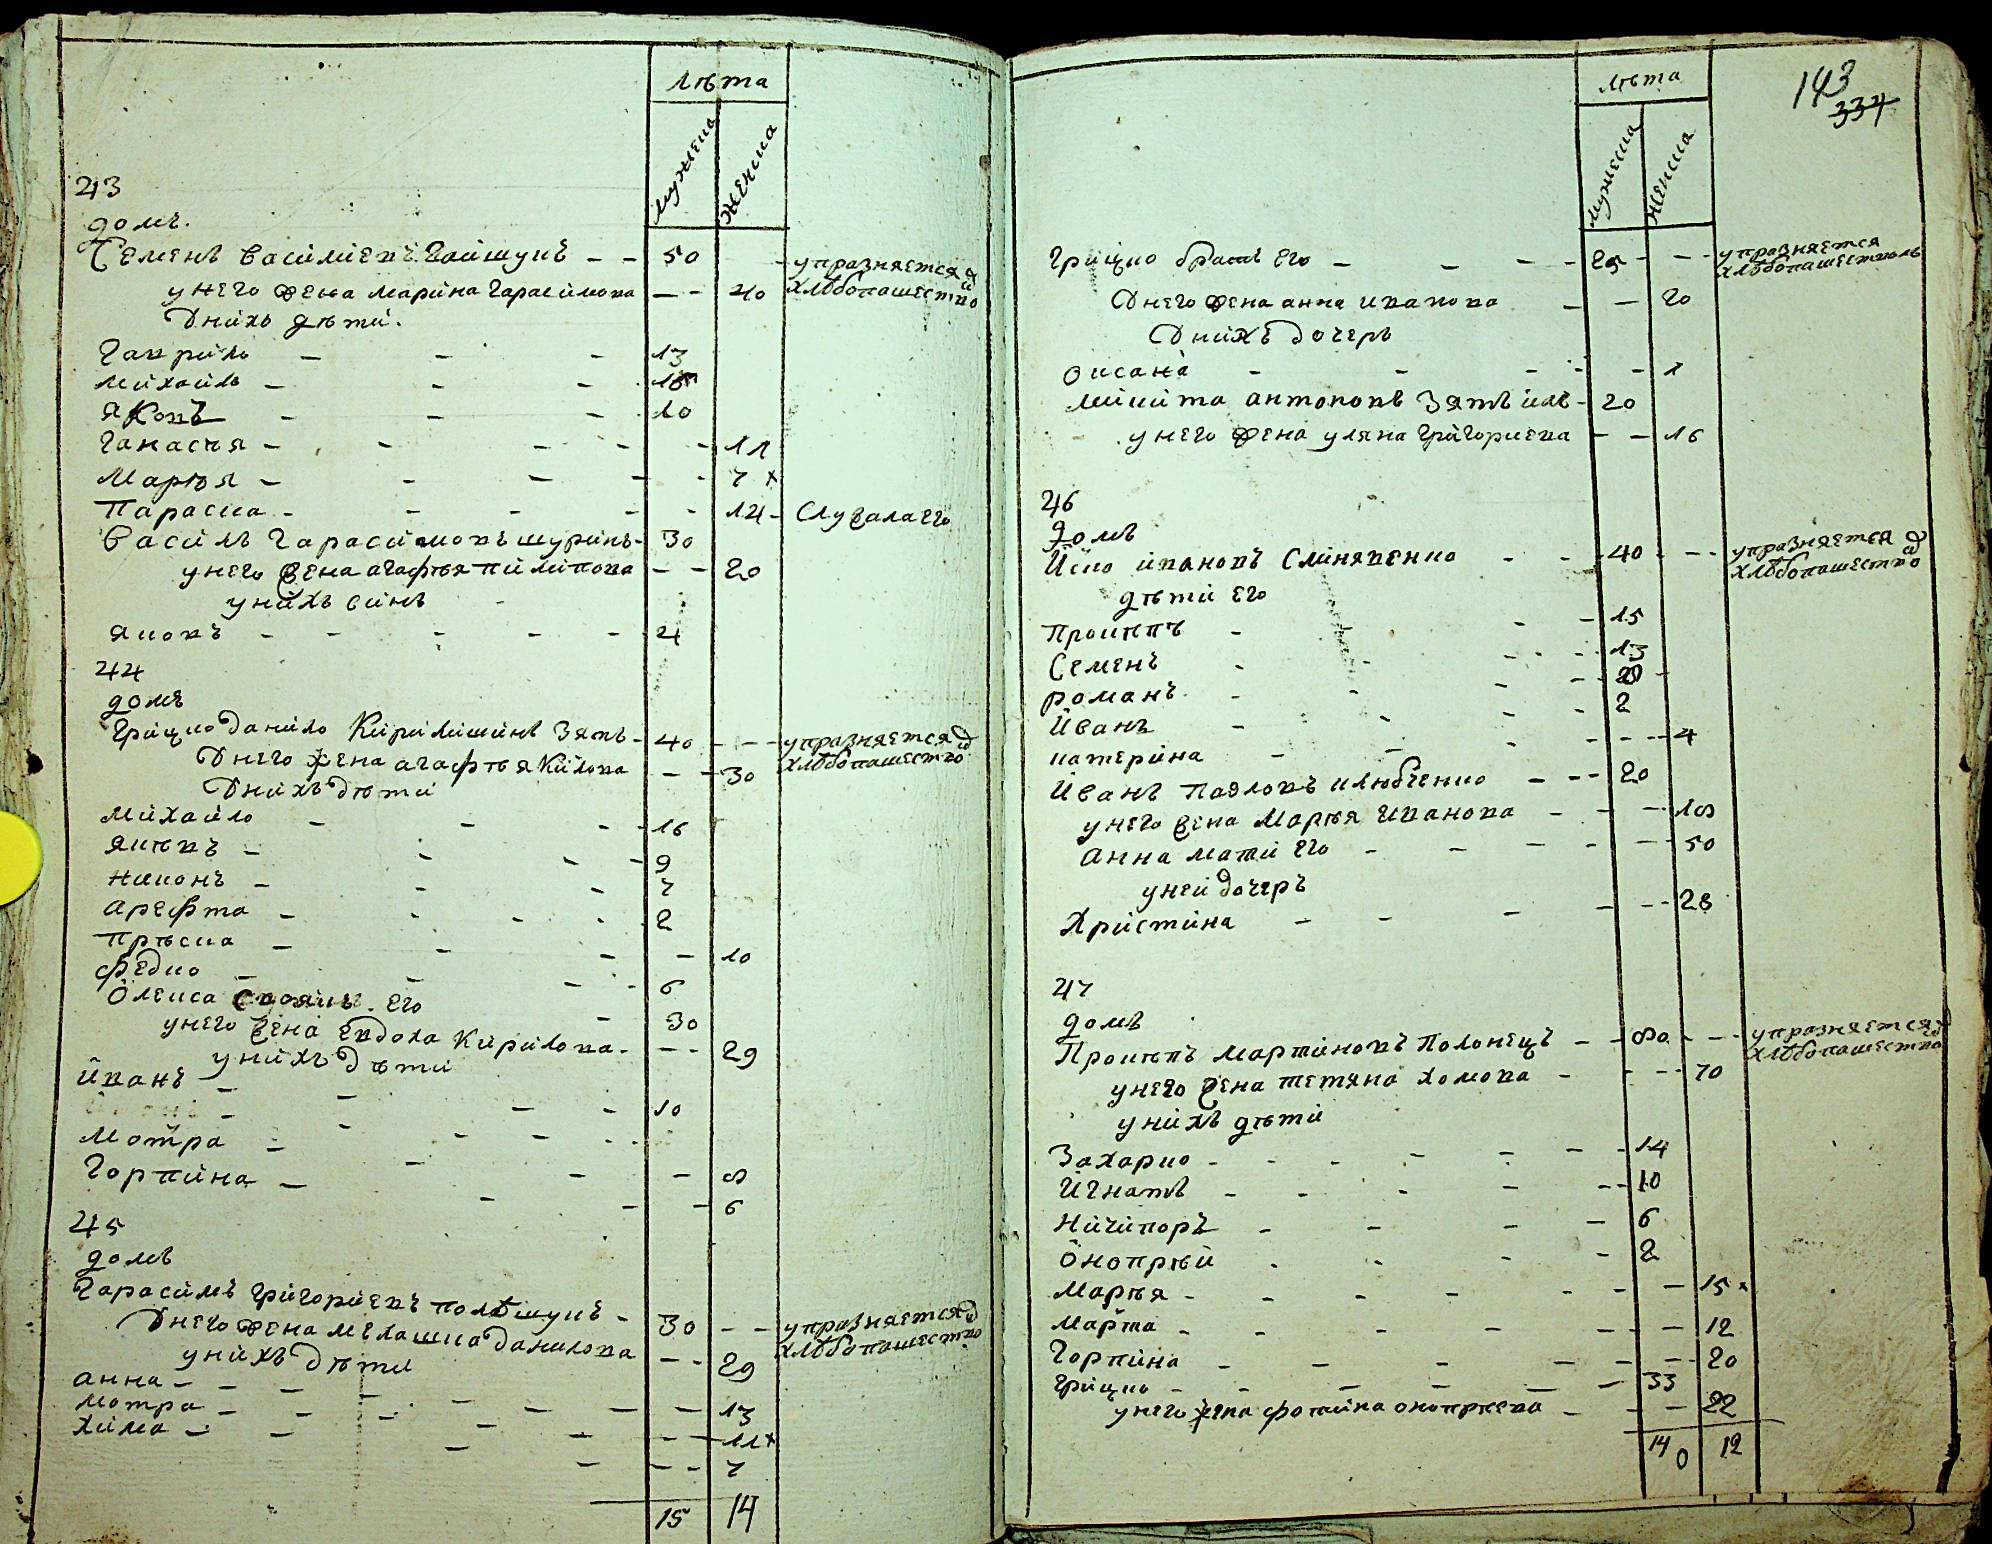 лѣта
мужеска
женска
43
домъ.
Семенъ Василіевъ Гайшунъ – – 50 упразняется
у него жена Марина Гарасимова – – 40 хлѣбопашество
У нихъ дѣти.
Гаврило – – – 13
Михайло – – –
Яковъ – – – 10
Ганасья – – – – 11
Марья – – – – 7 х
Параска – – – – 14 – Слугала его
Василь Гарасимовъ шуринъ – 30
у него жена Агафья Пилипова – – 20
у нихъ синъ
Яковъ – – – – – 4
44
домъ
Грицко Данило Кирилишинъ Зять – 40 – – – упразняется
У него жена Агафья Килова – – 30 хлѣбопашество
У нихъ дѣти
Михайло – – – – 16
Якѣвъ – – – – 9
Никонъ – – – 7
Арефта – – – – 2
Прѣска – – – – – 10
Федко – – – – 6
Олекса его – 30
у него жена Евдоха Кирилова – – – 29
у нихъ дѣти
Иванъ – – – – 10
Мотра – – – – 8
Горпина – – – – 6
45
домъ
Гарасимъ Григориевъ Полѣшукъ – 30 – – упразняется
У него жена Мелашка Данилова – – 29 хлѣбопашество
у нихъ дѣти
Анна – – – – – 13
Мотра – – – – – 11 х
Хима – – – – – 7
15 14
лѣта
мужеска
женска
143
334
Грицко братъ его – – – – 25 – – – упразняется
хлѣбопашествомъ
У него жена Анна Иванова – – 20
У нихъ дочеръ
Оксана – – – – – 1
Микита Антоновъ Зять ихъ – 20
у него жена Уляна Григориева – – 16
46
домъ
Иско Ивановъ Слинявенко – – 40 – – – упразняется
хлѣбопашество
дѣти его
Прокѣпъ – – – – 15
Семенъ – – – – 13
Романъ – – – –
Иванъ – – – – 2
Катерина – – – – – – 4
Иванъ Павловъ Илюбченко – – – 20
у него жена Марья Иванова – – – 18
Анна мати его – – – – – 50
у ней дочеръ
Христина – – – – – – 28
47
домъ
Прокѣпъ Мартиновъ Полонецъ – – 80 – – упразняется
хлѣбопашество
у него жена Тетяна Хомова – – – – 70
у нихъ дѣти
Захарко – – – – – – 14
Игнатъ – – – – – – 10
Ничипоръ – – – – 6
Онопрѣй – – – – 2
Марья – – – – – – 15 х
Марта – – – – – – 12
Горпина – – – – – – – 20
Грицко – – – – – – 33
у него жена Фотина Онопрѣева – – – 22
14 0 12